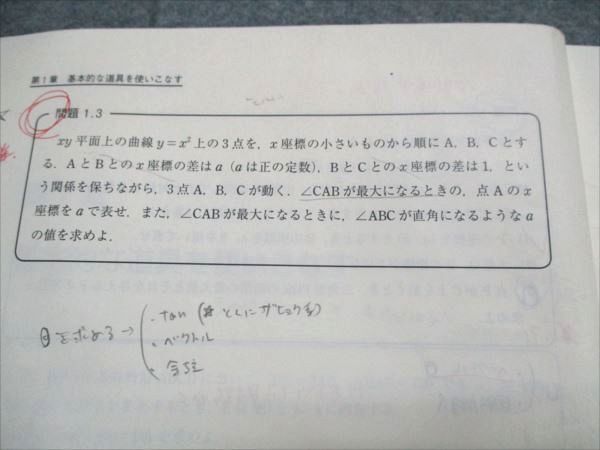 第1章 基本的な道具を使いこなす
問題 1.3
xy平面上の曲線 y=x² 上の3点を,x座標の小さいものから順に A,B,C とす
る.AとBとのx座標の差は a(a は正の定数),BとCとのx座標の差は1,とい
う関係を保ちながら,3点 A,B,C が動く.∠CABが最大になるときの,点Aのx
座標をaで表せ.また,∠CABが最大になるときに,∠ABCが直角になるようなa
の値を求めよ.
θを求める→
・tan
・ベクトル
・余弦